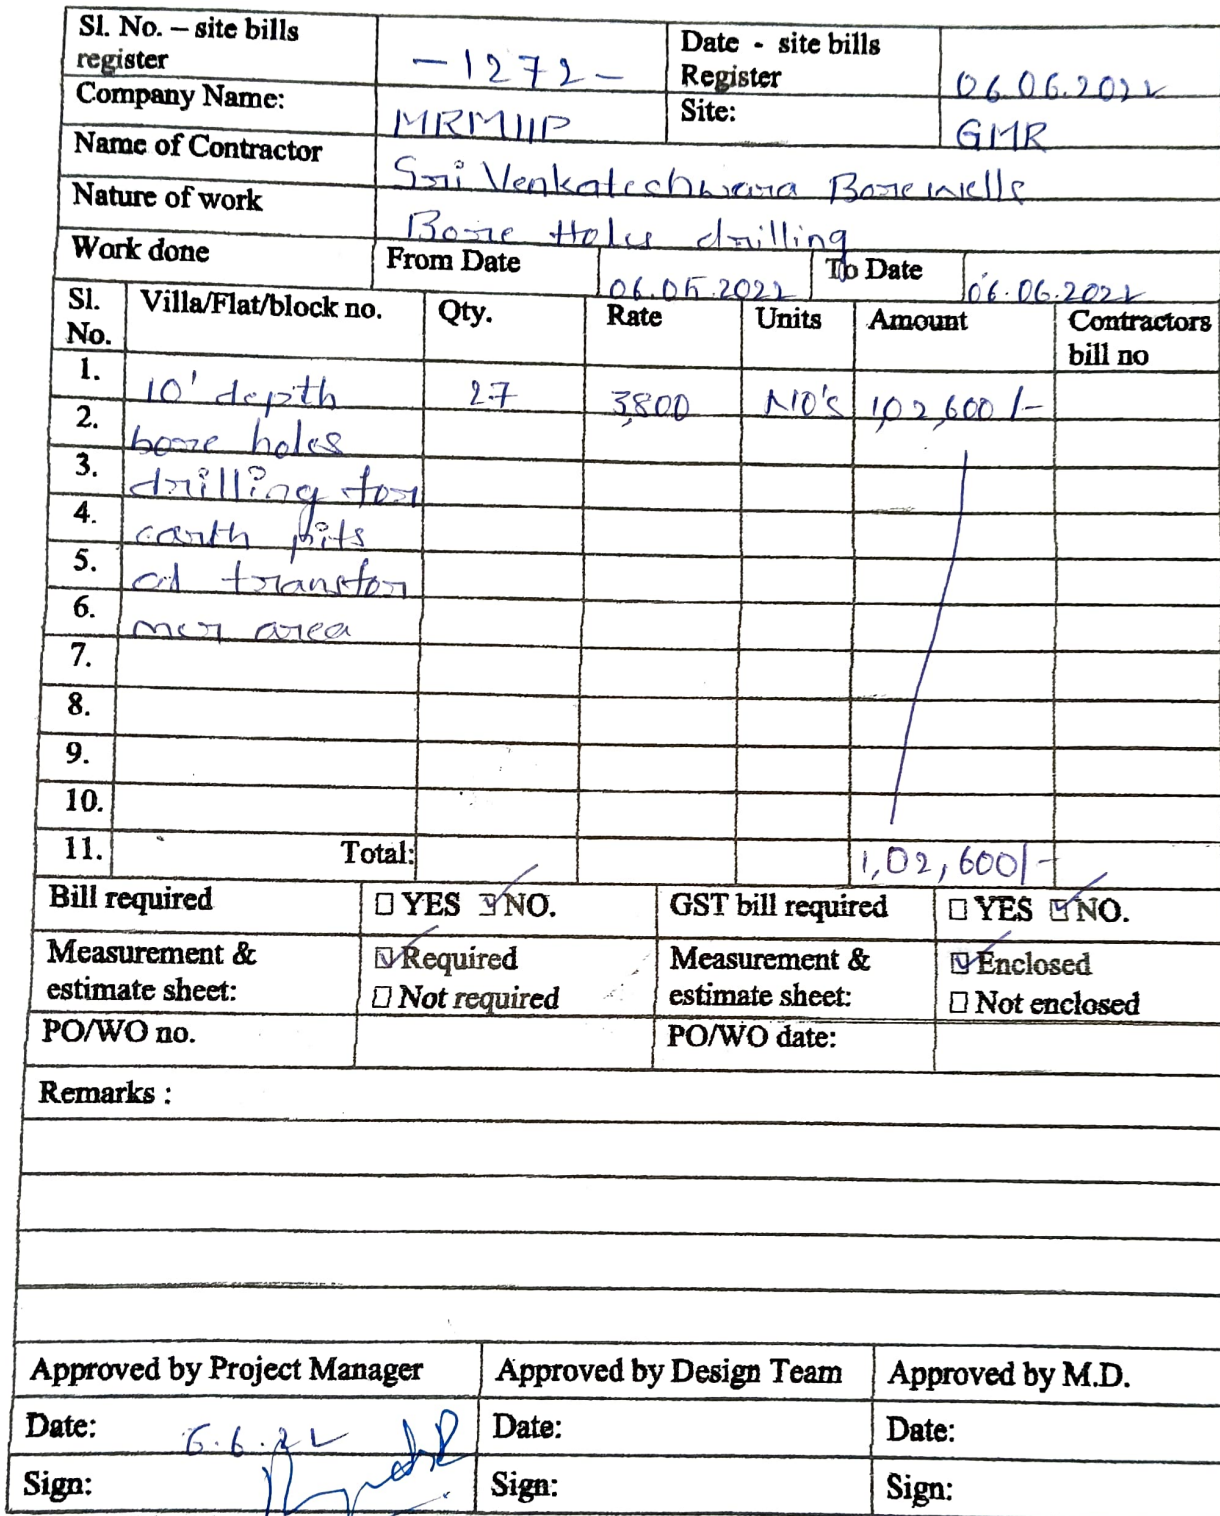 Sl. No. – site bills register -1272- Date - site bills Register 06.06.2022
Company Name: MRMIIP Site: GMR
Name of Contractor Sri Venkateshwara Borewells
Nature of work Bore Holes drilling
Work done From Date 06.05.2022 To Date 06.06.2022
Sl. No. Villa/Flat/block no. Qty. Rate Units Amount Contractors bill no
1. 10' depth 27 3,800 NO's 1,02,600/-
2. bore holes
3. drilling for
4. earth pits
5. transfor
6. mer area
7.
8.
9.
10.
11. Total: 1,02,600/-
Bill required ☐ YES ☑ NO. GST bill required ☐ YES ☑ NO.
Measurement & estimate sheet: ☑ Required Measurement & estimate sheet: ☑ Enclosed
☐ Not required ☐ Not enclosed
PO/WO no. PO/WO date:
Remarks :
Approved by Project Manager Approved by Design Team Approved by M.D.
Date: 6.6.22 Date: Date:
Sign: Sign: Sign: